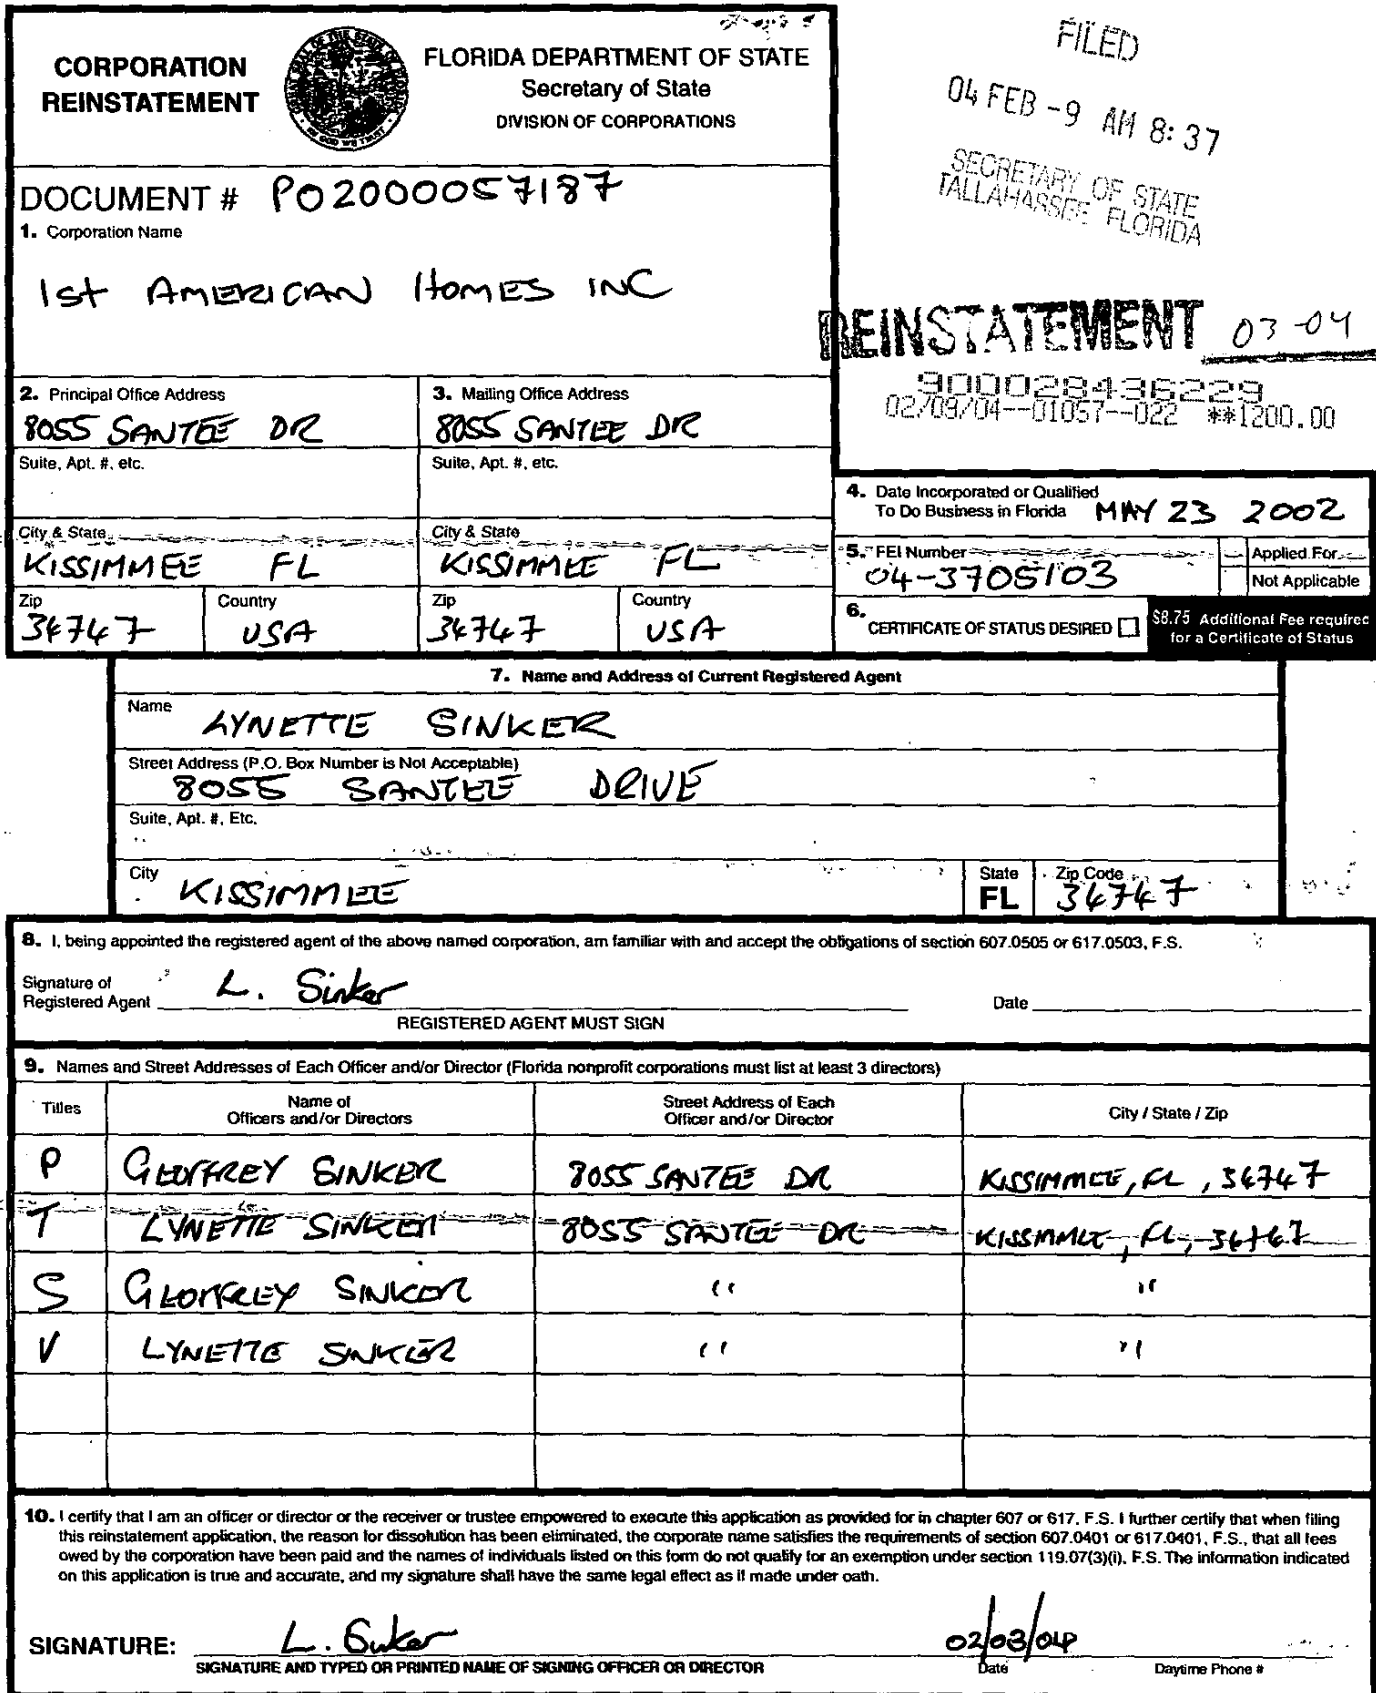 CORPORATION
REINSTATEMENT
FLORIDA DEPARTMENT OF STATE
Secretary of State
DIVISION OF CORPORATIONS
FILED
04 FEB -9 AM 8:37
SECRETARY OF STATE
TALLAHASSEE FLORIDA
DOCUMENT # P02000057187
1. Corporation Name
1st AMERICAN HOMES INC
REINSTATEMENT 03-04
900028436229
02/09/04--01057--022 **1200.00
2. Principal Office Address
8055 SANTEE DR
3. Mailing Office Address
8055 SANTEE DR
Suite, Apt. #, etc.
Suite, Apt. #, etc.
4. Date Incorporated or Qualified
To Do Business in Florida MAY 23 2002
City & State
KISSIMMEE FL
City & State
KISSIMMEE FL
5. FEI Number
04-3705103
Applied For
Not Applicable
Zip
34747
Country
USA
Zip
34747
Country
USA
6.
CERTIFICATE OF STATUS DESIRED
$8.75 Additional Fee required
for a Certificate of Status
7. Name and Address of Current Registered Agent
Name
LYNETTE SINKER
Street Address (P.O. Box Number is Not Acceptable)
8055 SANTEE DRIVE
Suite, Apt. #, Etc.
City
KISSIMMEE
State
FL
Zip Code
34747
8. I, being appointed the registered agent of the above named corporation, am familiar with and accept the obligations of section 607.0505 or 617.0503, F.S.
Signature of
Registered Agent L. Sinker
Date
REGISTERED AGENT MUST SIGN
9. Names and Street Addresses of Each Officer and/or Director (Florida nonprofit corporations must list at least 3 directors)
Titles
Name of
Officers and/or Directors
Street Address of Each
Officer and/or Director
City / State / Zip
P GEOFFREY SINKER 8055 SANTEE DR KISSIMMEE, FL, 34747
T LYNETTE SINKER 8055 SANTEE DR KISSIMMEE, FL, 34747
S GEOFFREY SINKER " "
V LYNETTE SINKER " "
10. I certify that I am an officer or director or the receiver or trustee empowered to execute this application as provided for in chapter 607 or 617, F.S. I further certify that when filing
this reinstatement application, the reason for dissolution has been eliminated, the corporate name satisfies the requirements of section 607.0401 or 617.0401, F.S., that all fees
owed by the corporation have been paid and the names of individuals listed on this form do not qualify for an exemption under section 119.07(3)(i), F.S. The information indicated
on this application is true and accurate, and my signature shall have the same legal effect as if made under oath.
SIGNATURE: L. Sinker 02/03/04
SIGNATURE AND TYPED OR PRINTED NAME OF SIGNING OFFICER OR DIRECTOR
Date
Daytime Phone #